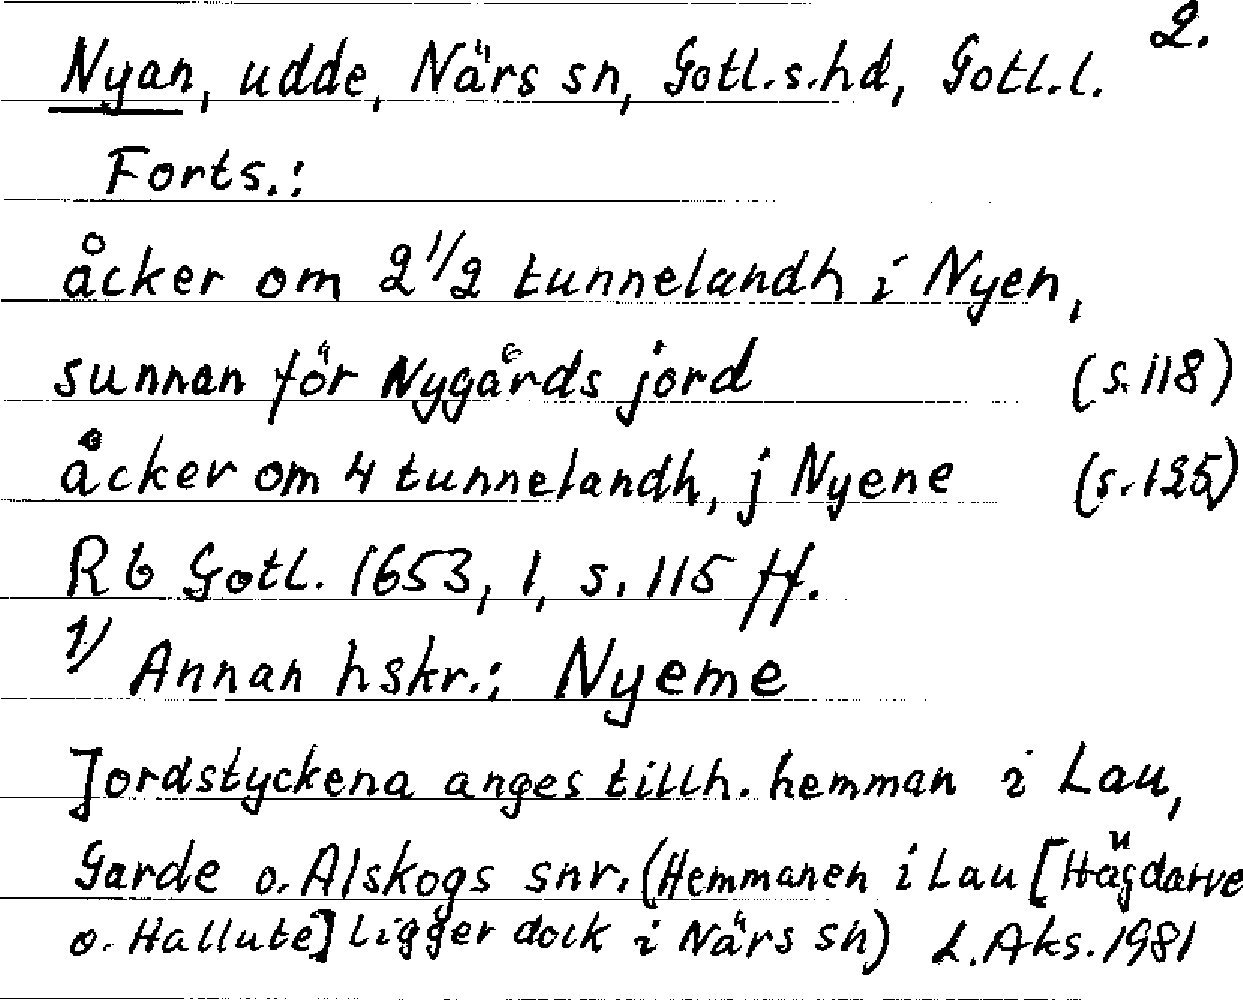 2.
Nyan, udde, Närs sn, Gotl.s.hd, Gotl.l.
Forts.:
åcker om 2 1/2 tunnelandh i Nyen,
sunnan för Nygårds jord (s.118)
åcker om 4 tunnelandh, j Nyene (s.125)
Rb Gotl. 1653, 1, s. 115 ff.
1/ Annan hskr.: Nyeme
Jordstyckena anges tillh. hemman i Lau,
Garde o. Alskogs snr. (Hemmanen i Lau [Hägdarve
o. Hallute] ligger dock i Närs sn) L. Aks. 1981